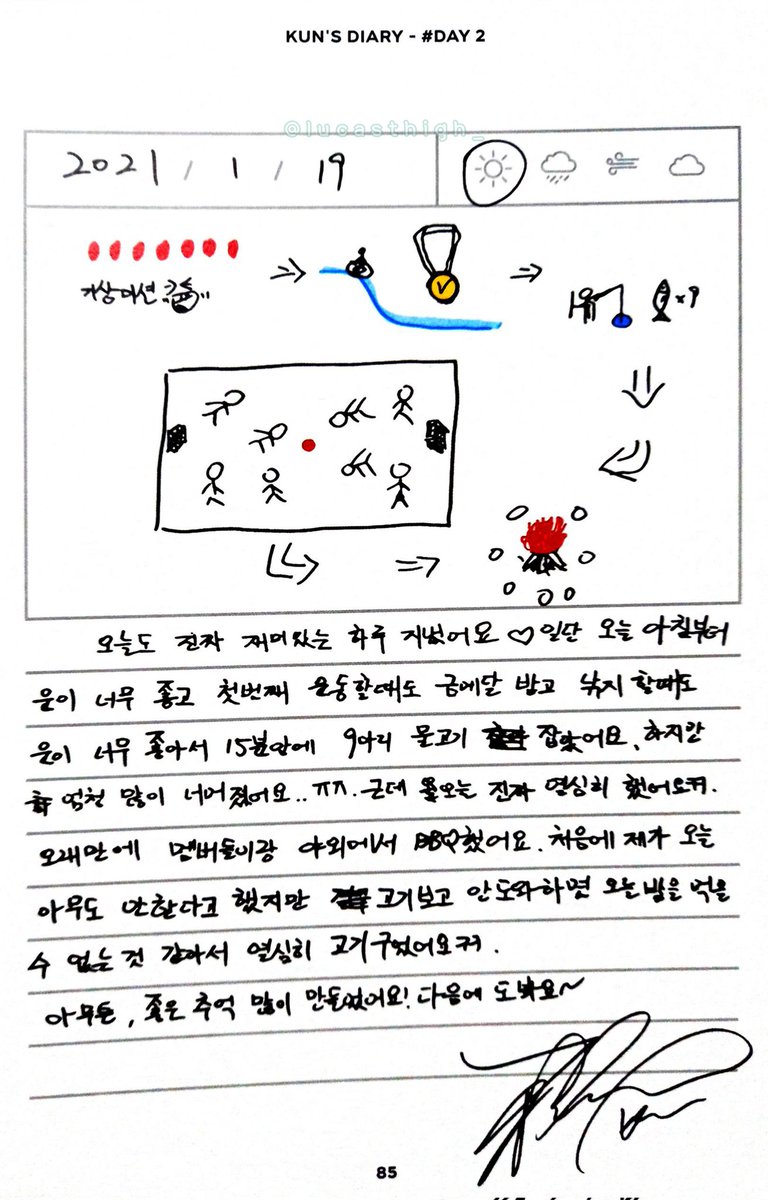 KUN'S DIARY - #DAY 2
@lucasthigh_
2021 / 1 / 19
기상미션
×9
오늘도 진짜 재미있는 하루 지냈어요 ♡ 일단 오늘 아침부터
운이 너무 좋고 첫번째 운동할때도 금메달 받고 낚시 할때도
운이 너무 좋아서 15분만에 9마리 물고기 잡았어요. 하지만
엄청 많이 너머졌어요.. ㅠㅠ. 근데 진짜 열심히 했어요ㅋㅋ.
오래만에 멤버들이랑 야외에서 BBQ했어요. 처음에 제가 오늘
아무도 안한다고 했지만 고기보고 안도와하면 오늘 밤을 먹을
수 없는 것 같아서 열심히 고기구웠어요ㅋㅋ.
아무튼, 좋은 추억 많이 만들었어요! 다음에 또봐요~
85